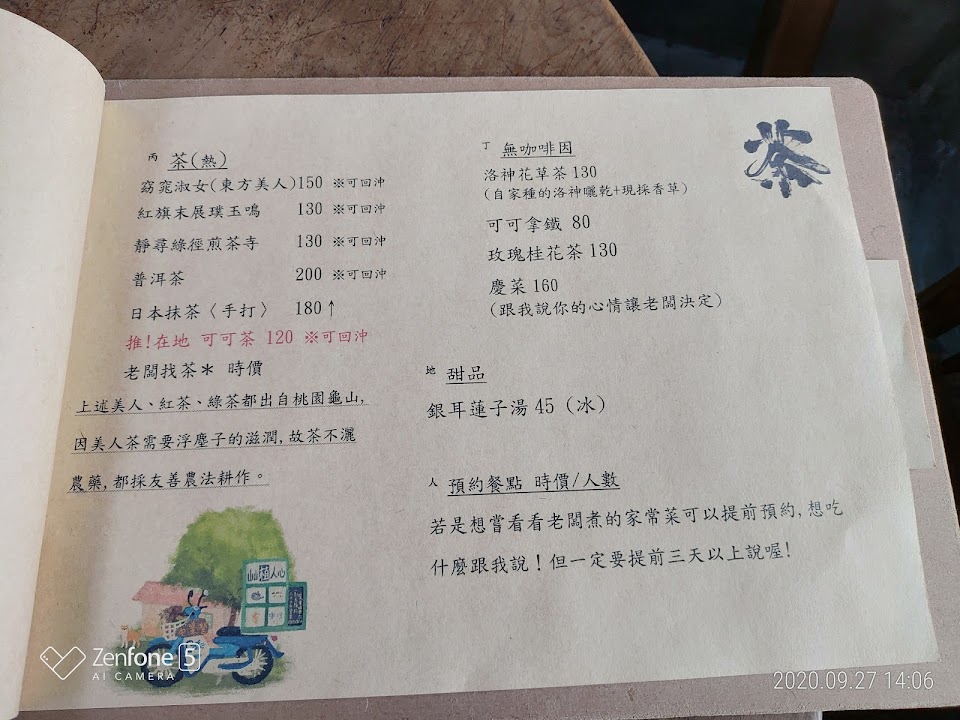 茶
丙 茶(熱)
窈窕淑女(東方美人)150 ※可回沖
紅旗末展璞玉鳴 130 ※可回沖
靜尋綠徑煎茶寺 130 ※可回沖
普洱茶 200 ※可回沖
日本抹茶〈手打〉 180↑
推!在地 可可茶 120 ※可回沖
老闆找茶＊ 時價
上述美人、紅茶、綠茶都出自桃園龜山,
因美人茶需要浮塵子的滋潤,故茶不灑
農藥,都採友善農法耕作。
丁 無咖啡因
洛神花草茶 130
(自家種的洛神曬乾+現採香草)
可可拿鐵 80
玫瑰桂花茶 130
慶菜 160
(跟我說你的心情讓老闆決定)
地 甜品
銀耳蓮子湯 45 (冰)
人 預約餐點 時價/人數
若是想嘗看看老闆煮的家常菜可以提前預約,想吃
什麼跟我說！但一定要提前三天以上說喔!
Zenfone 5
AI CAMERA
2020.09.27 14:06